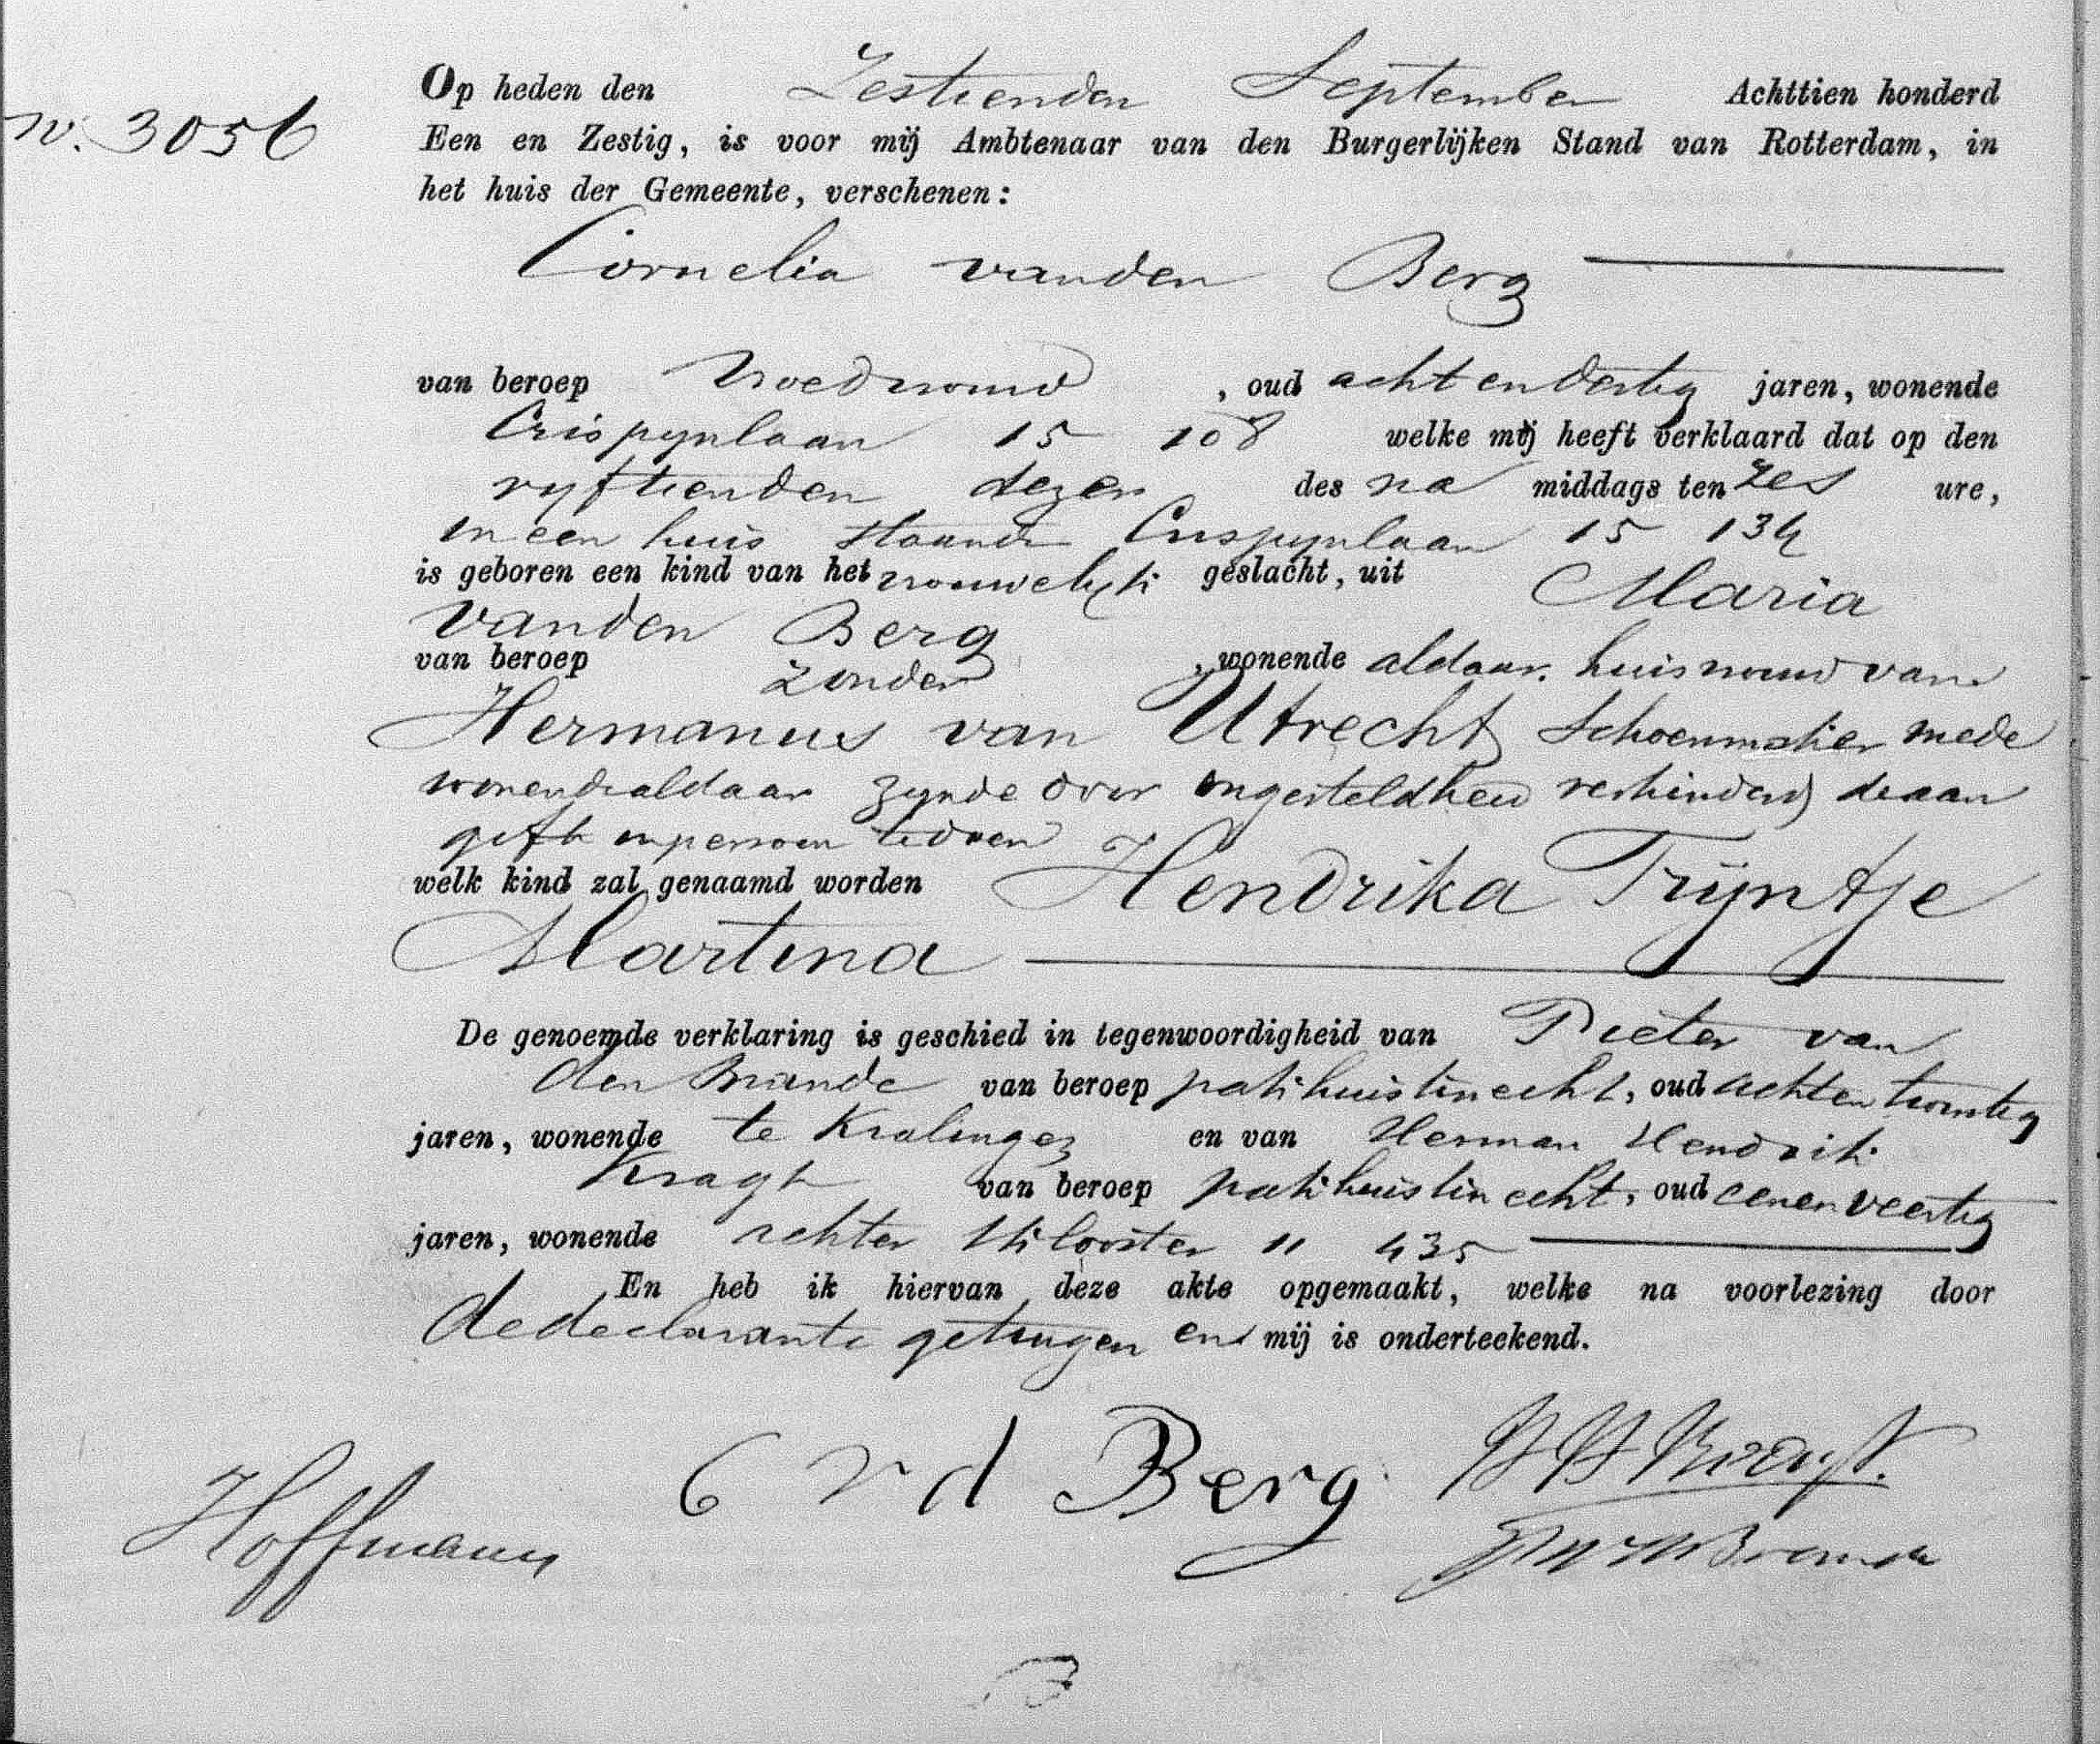 Op heden den Zestienden September Achttien honderd
N. 3056
Een en Zestig, is voor mij Ambtenaar van den Burgerlijken Stand van Rotterdam, in
het huis der Gemeente, verschenen:
Cornelia van den Berg
van beroep vroedvrouw, oud acht en dertig jaren, wonende
Crispynlaan 15 108 welke mij heeft verklaard dat op den
vyftienden dezer des na middags ten zes ure,
in een huis staande Crispynlaan 15 134
is geboren een kind van het vrouwelijk geslacht, uit Maria
van den Berg
van beroep zonder, wonende aldaar. huisvrouw van
Hermanus van Utrecht Schoenmaker mede
wonende aldaar zynde door ongesteldheid verhinderd de aan
gifte in persoon te doen
welk kind zal genaamd worden Hendrika Trijntje
Martina
De genoemde verklaring is geschied in tegenwoordigheid van Pieter van
den Brande van beroep pakhuisknecht, oud acht en twintig
jaren, wonende te Kralingen en van Herman Hendrik
Kragt van beroep pakhuisknecht, oud een en veertig
jaren, wonende achter Klooster 11 435
En heb ik hiervan deze akte opgemaakt, welke na voorlezing door
de declarante getuigen en mij is onderteekend.
H H Kragt.
C v d Berg
Hoffmann